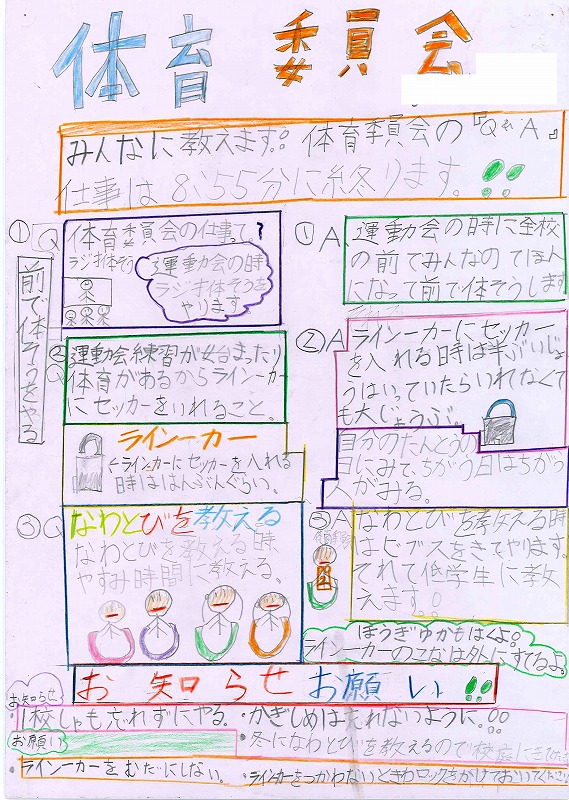 体育 委員会
みんなに教えます。体育委員会の『Q&A』
仕事は8:55分に終ります。!!
① Q 体育委員会の仕事って、?
ラジオ体そう
運動会の時
ラジオ体そうを
やります
前で体そうをやる
① A、運動会の時に全校
の前でみんなのてほん
になって前で体そうします
② Q 運動会練習が始まったり
体育があるからラインーカー
にセッカーをいれること。
ラインーカー
←ラインーカーにセッカーを入れる
時ははんぶんぐらい。
② A ラインーカーにセッカー
を入れる時は半ぶいじょ
うはいっていたらいれなくて
も大じょうぶ。
自分のたんとうの
日にみて、ちがう日はちがう
人がみる。
③ Q なわとびを教える
なわとびを教える時
やすみ時間に教える。
③ A なわとびを教える時
はビブスをきてやります。
てれて低学生に教
えます。
ほうぎゆかもはくよ。
ラインーカーのこなは外にすてるよ。
お知らせお願い!!
お知らせ
・1校しゃも忘れずにやる。
・かぎしめは忘れないように。
お願い
・冬になわとびを教えるので校庭に
・ラインーカーをむだにしない。
・ラインーカーをつかわないときわロックをかけておいてください